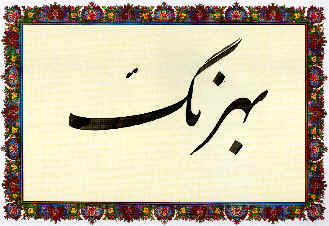 بهرنگ